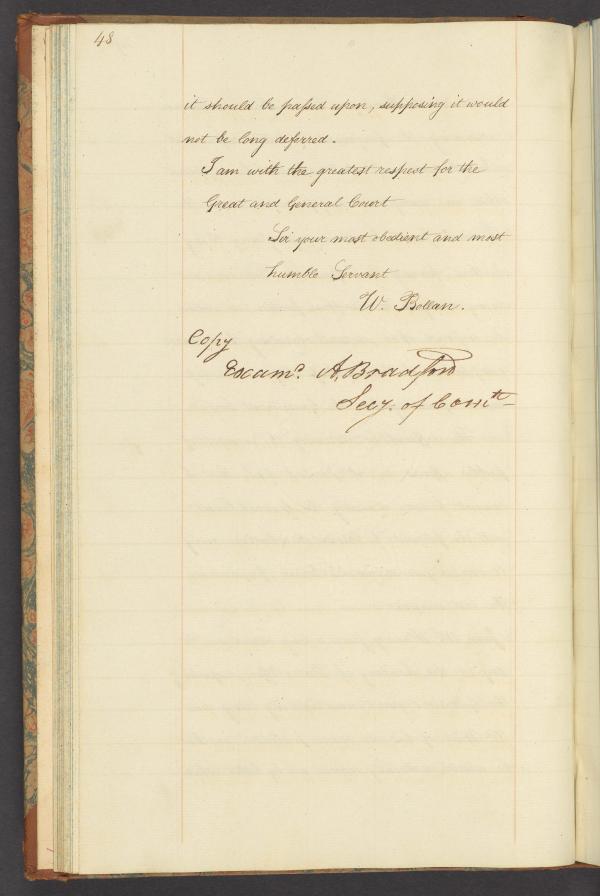 48
it should be passed upon, supposing it would
not be long deferred.
I am with the greatest respect for the
Great and General Court
Sir your most obedient and most
humble Servant
W. Bollan.
Copy
Examd. A. Bradford
Secy. of Comth